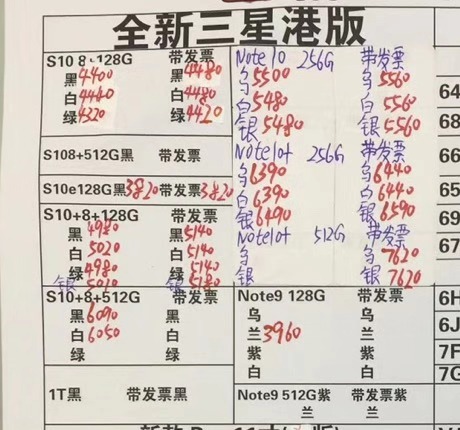 全新三星港版
S10 8+128G 带发票
黑4400 黑4480
白4440 白4480
绿4320 绿4420
S108+512G黑 带发票
S10e128G黑3820带发票3820
S10+8+128G 带发票
黑4980 黑5140
白5020 白5140
绿4980 绿5140
银5010 银5180
S10+8+512G 带发票
黑6090 黑
白6050 白
绿 绿
1T黑 带发票黑
Note10 256G 带发票
乌5500 乌5560
白5480 白5560
银5480 银5560
Note10+ 256G 带发票
乌6390 乌6440
白6390 白6440
银6490 银6590
Note10+ 512G 带发票
乌 乌7620
银 银7620
Note9 128G 带发票
乌 乌
兰3960 兰
紫 紫
白 白
Note9 512G紫 带发票紫
兰 兰
64
68
66
65
69
67
6H
6J
7F
7G